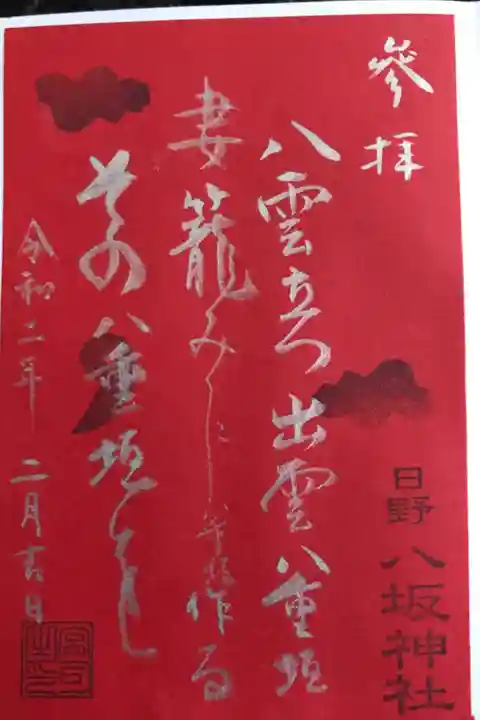 参拝
日野
八坂神社
八雲立つ出雲八重垣
妻籠みに八重垣作る
その八重垣を
令和二年二月吉日